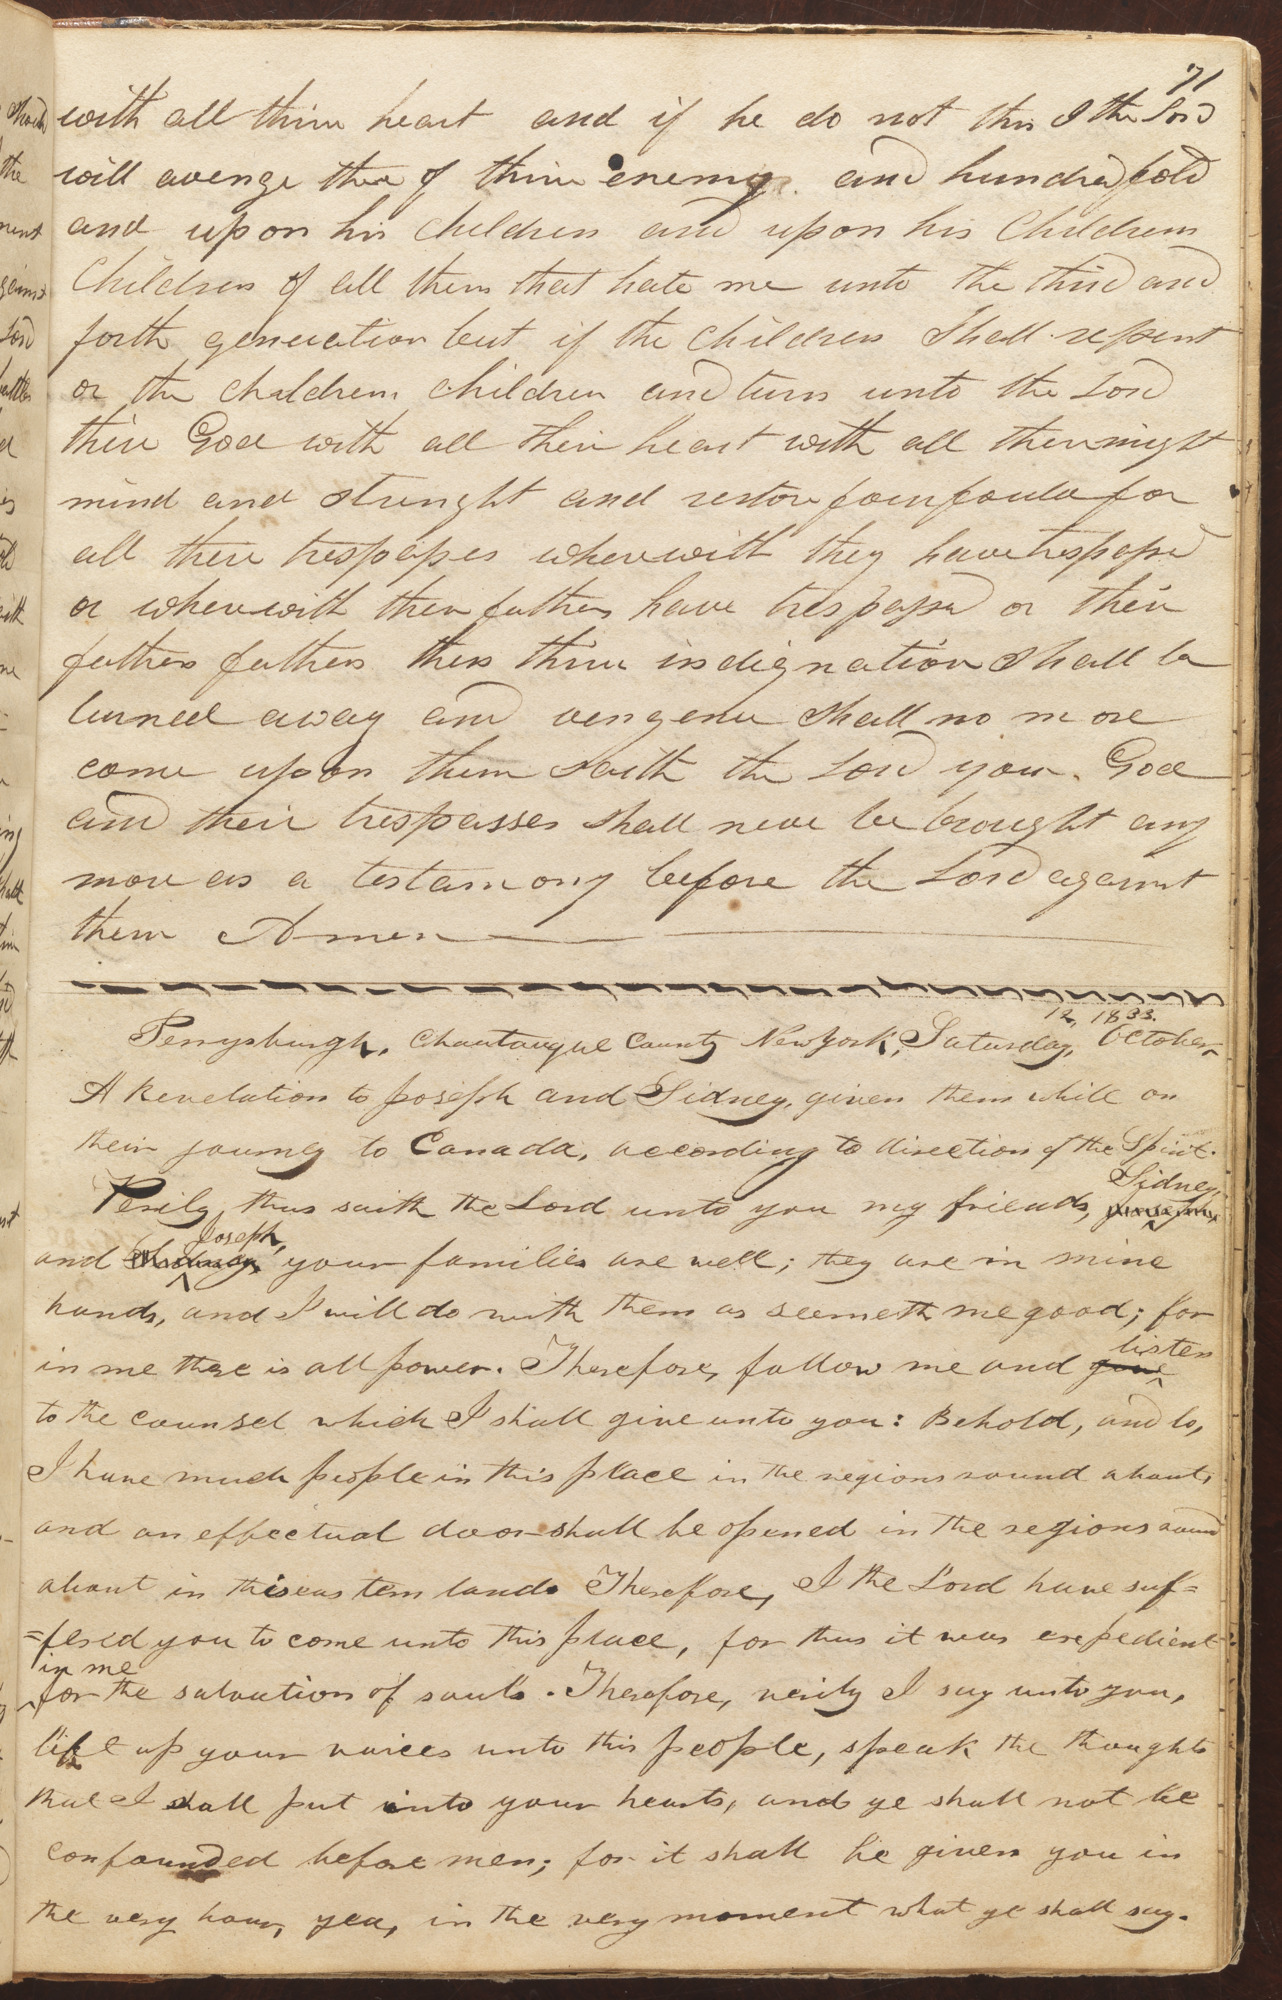 71
with all thine heart and if he do not this I the Lord
will avenge thee of thine enemy and hundred fold
and upon his children and upon his Childrens
Children of all them that hate me unto the third and
forth generation but if the children Shall repent
or the childrens children and turn unto the Lord
thire God with all their heart with all their might
mind and strenght and restore fourfould for
all there trespasses wherewith they have trespassd
or wherewith their fathers have trespassd or their
fathers fathers then thine indignation shall be
turned away and vengence shall no more
come upon them saith the Lord your God
and their trespasses shall never be brought any
more as a testamony before the Lord against
them Amen
12, 1833.
Perrysburgh, Chautauque County New York, Saturday, October
A Revelation to Joseph and Sidney, given them while on
their journey to Canada, according to direction of the Spirit.
Sidney,
Verily, thus saith the Lord unto you my friends, Joseph,
Joseph,
and Sidney, your families are well; they are in mine
hands, and I will do with them as seemeth me good; for
listen
in me there is all power. Therefore, follow me and give
to the counsel which I shall give unto you: Behold, and lo,
I have much people in this place in the regions round about,
and an effectual door shall be opened in the regions round
about in this eastern land. Therefore, I the Lord have suf=
=fered you to come unto this place, for thus it was expedient
in me
for the salvation of souls. Therefore, verily I say unto you,
lift up your voices unto this people, speak the thoughts
that I shall put into your hearts, and ye shall not be
confounded before men; for it shall be given you in
the very hour, yea, in the very moment what ye shall say.